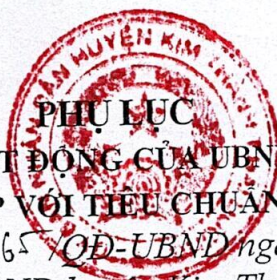 ÂN HUYỆN KIM
PHỤ LỤC
T ĐỘNG CỦA UBN
VỚI TIÊU CHUẨN
65 /QĐ-UBND ngà